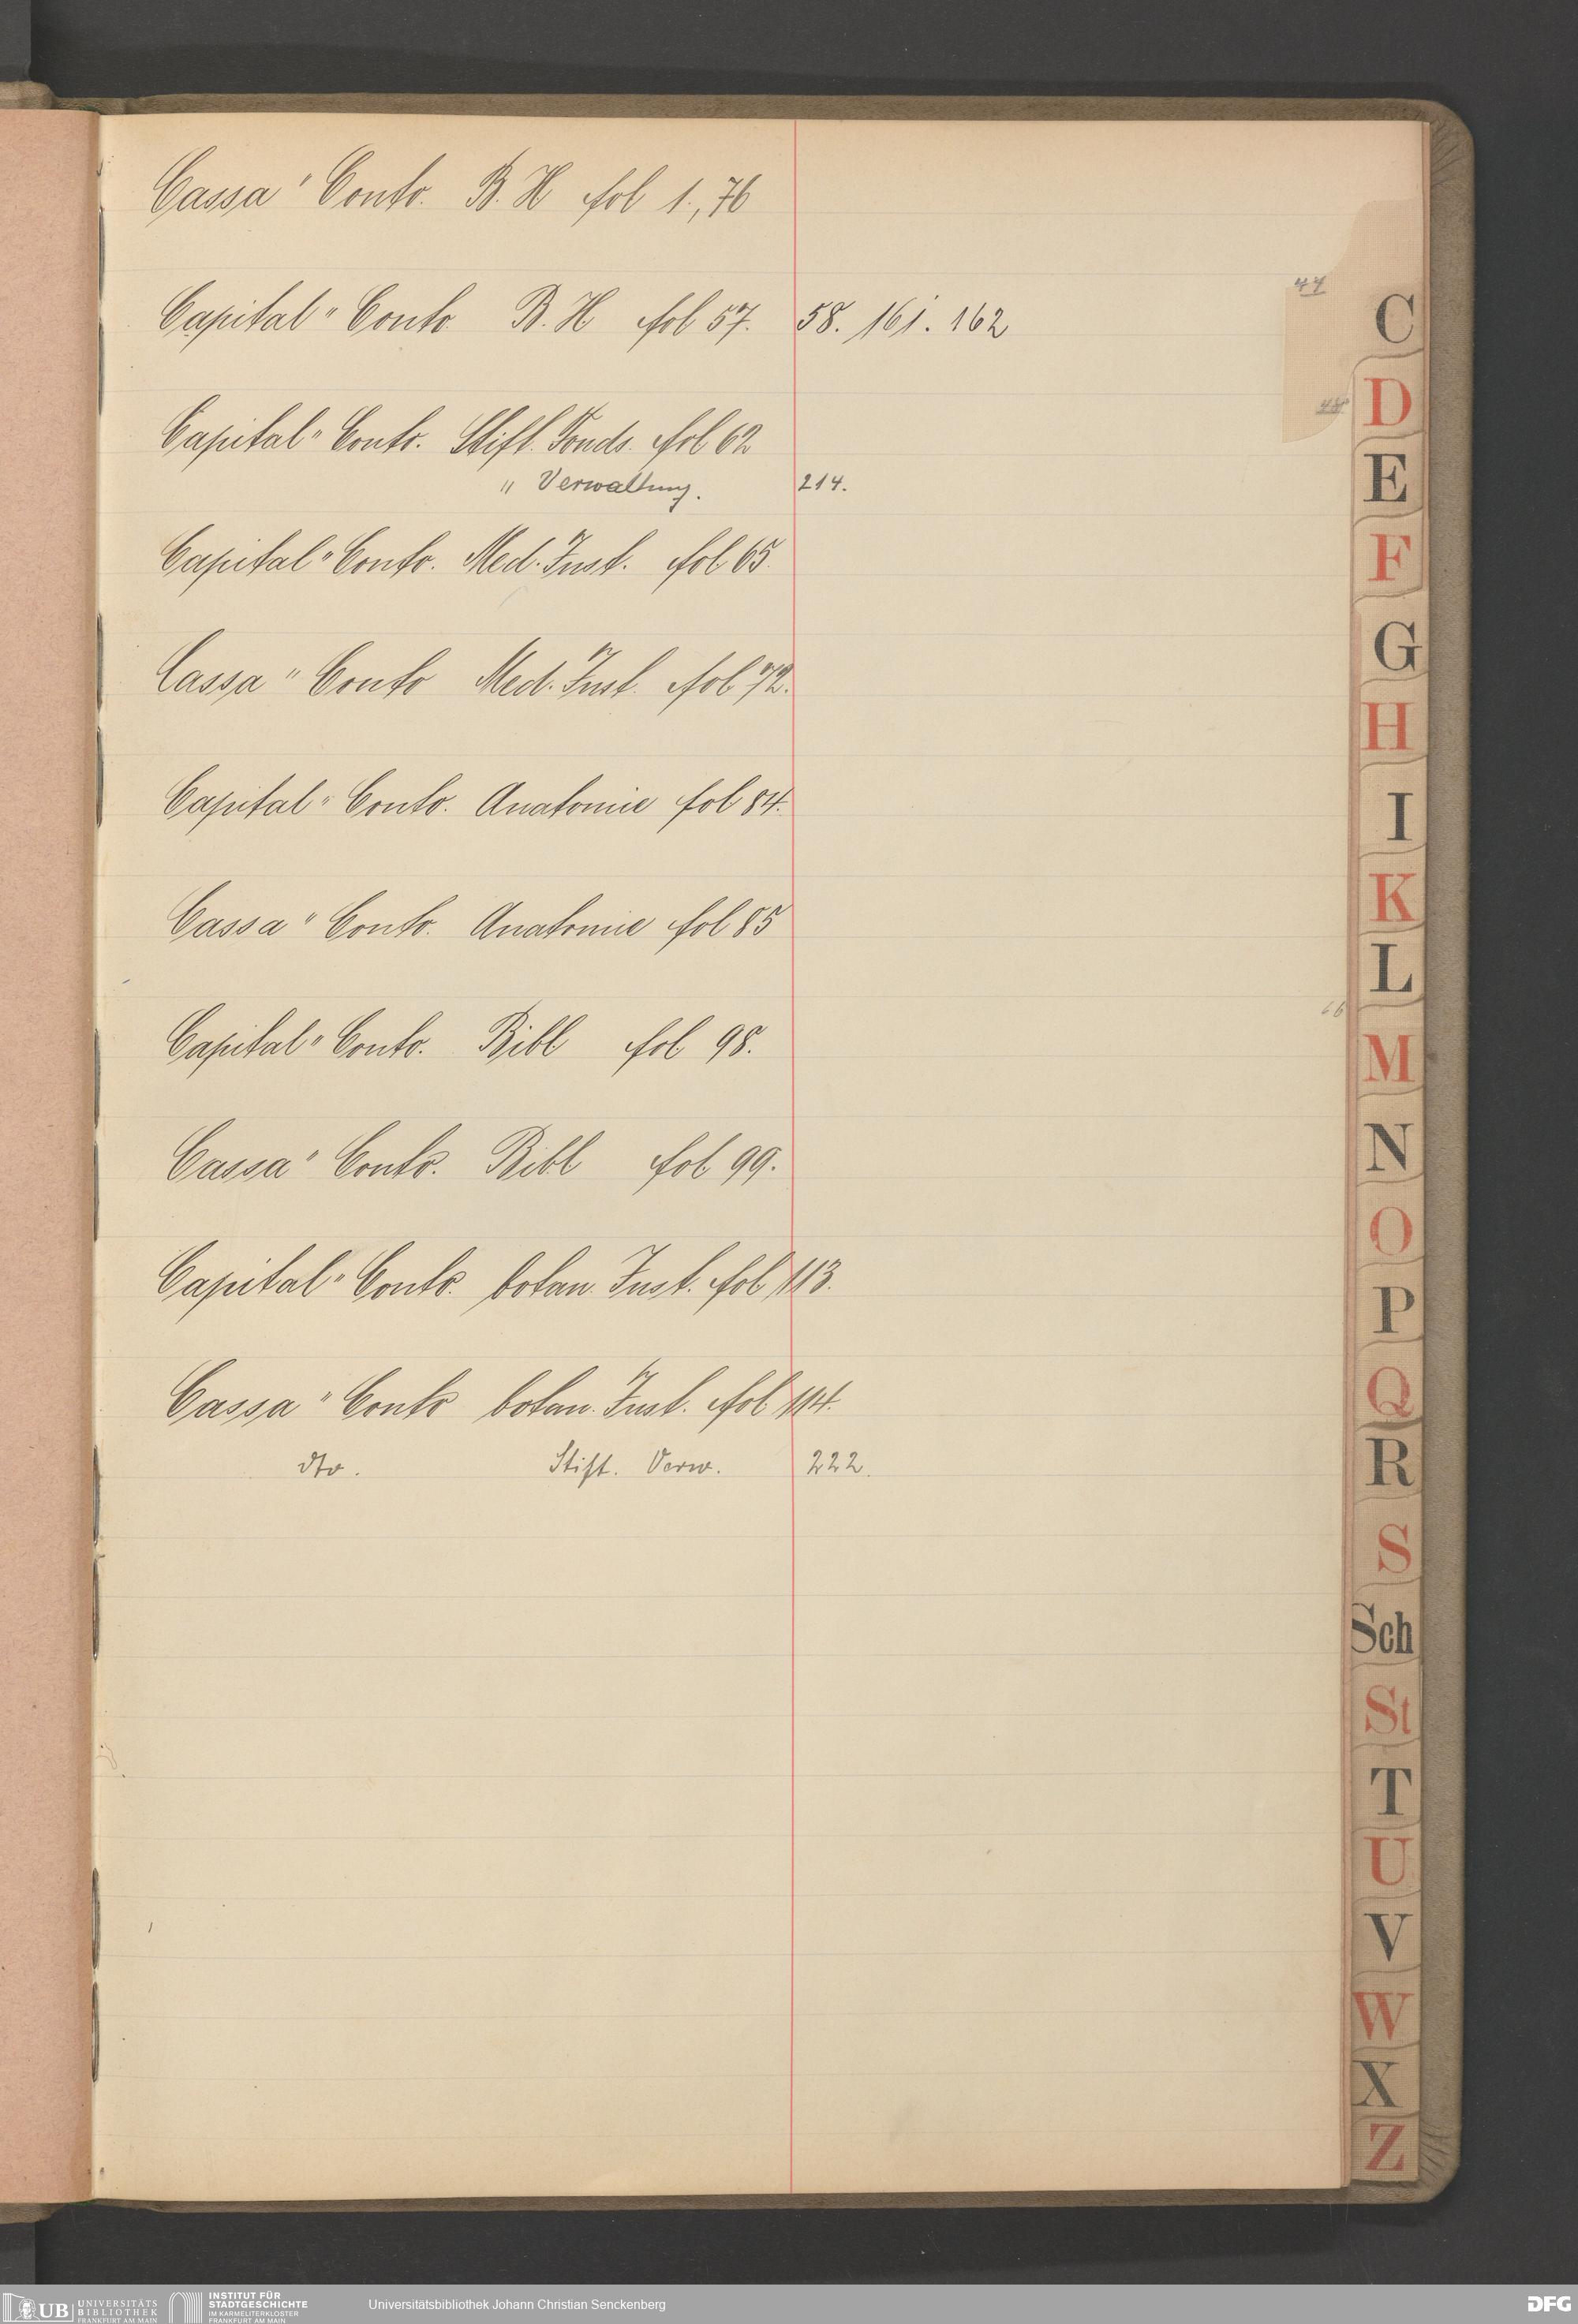 Cassa " Conto. B. H fol 1., 76
Capital " Conto B. H fol 57. 58. 161. 162
Capital " Conto. Stift. Fonds. fol 62
" Verwaltung. 214.
Capital " Conto. Med. Inst. fol 65.
Cassa " Conto Med. Inst. fol 72.
Capital " Conto. Anatomie fol 84.
Cassa " Conto. Anatomie fol 85
Capital " Conto. Bibl fol 98.
Cassa " Conto. Bibl fol 99.
Capital " Conto. botan. Inst. fol 113.
Cassa " Conto botan. Inst. fol 114.
dto. Stift. Verw. 222.
C
D
E
F
G
H
I
K
L
M
N
O
P
Q
R
S
Sch
St
T
U
V
W
X
Z
UB UNIVERSITÄTS
BIBLIOTHEK
FRANKFURT AM MAIN
INSTITUT FÜR
STADTGESCHICHTE
IM KARMELITERKLOSTER
FRANKFURT AM MAIN
Universitätsbibliothek Johann Christian Senckenberg
DFG